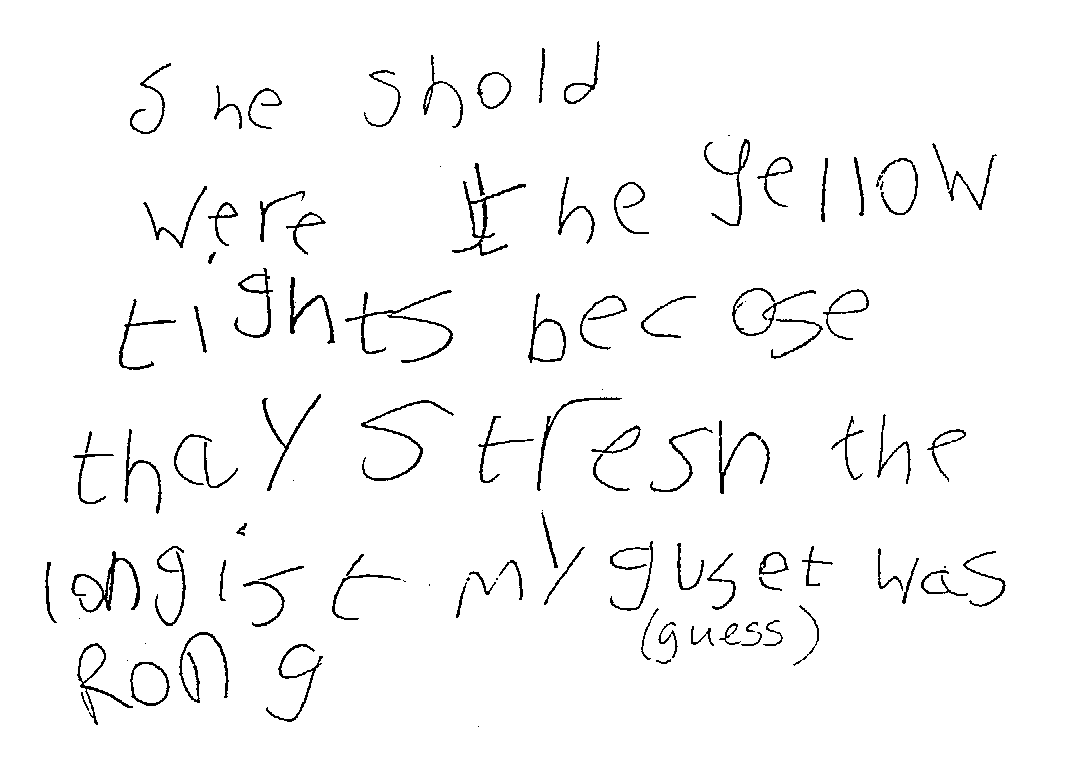 She shold
were the yellow
tights becose
thay stresh the
longist my guset was
(guess)
Rong